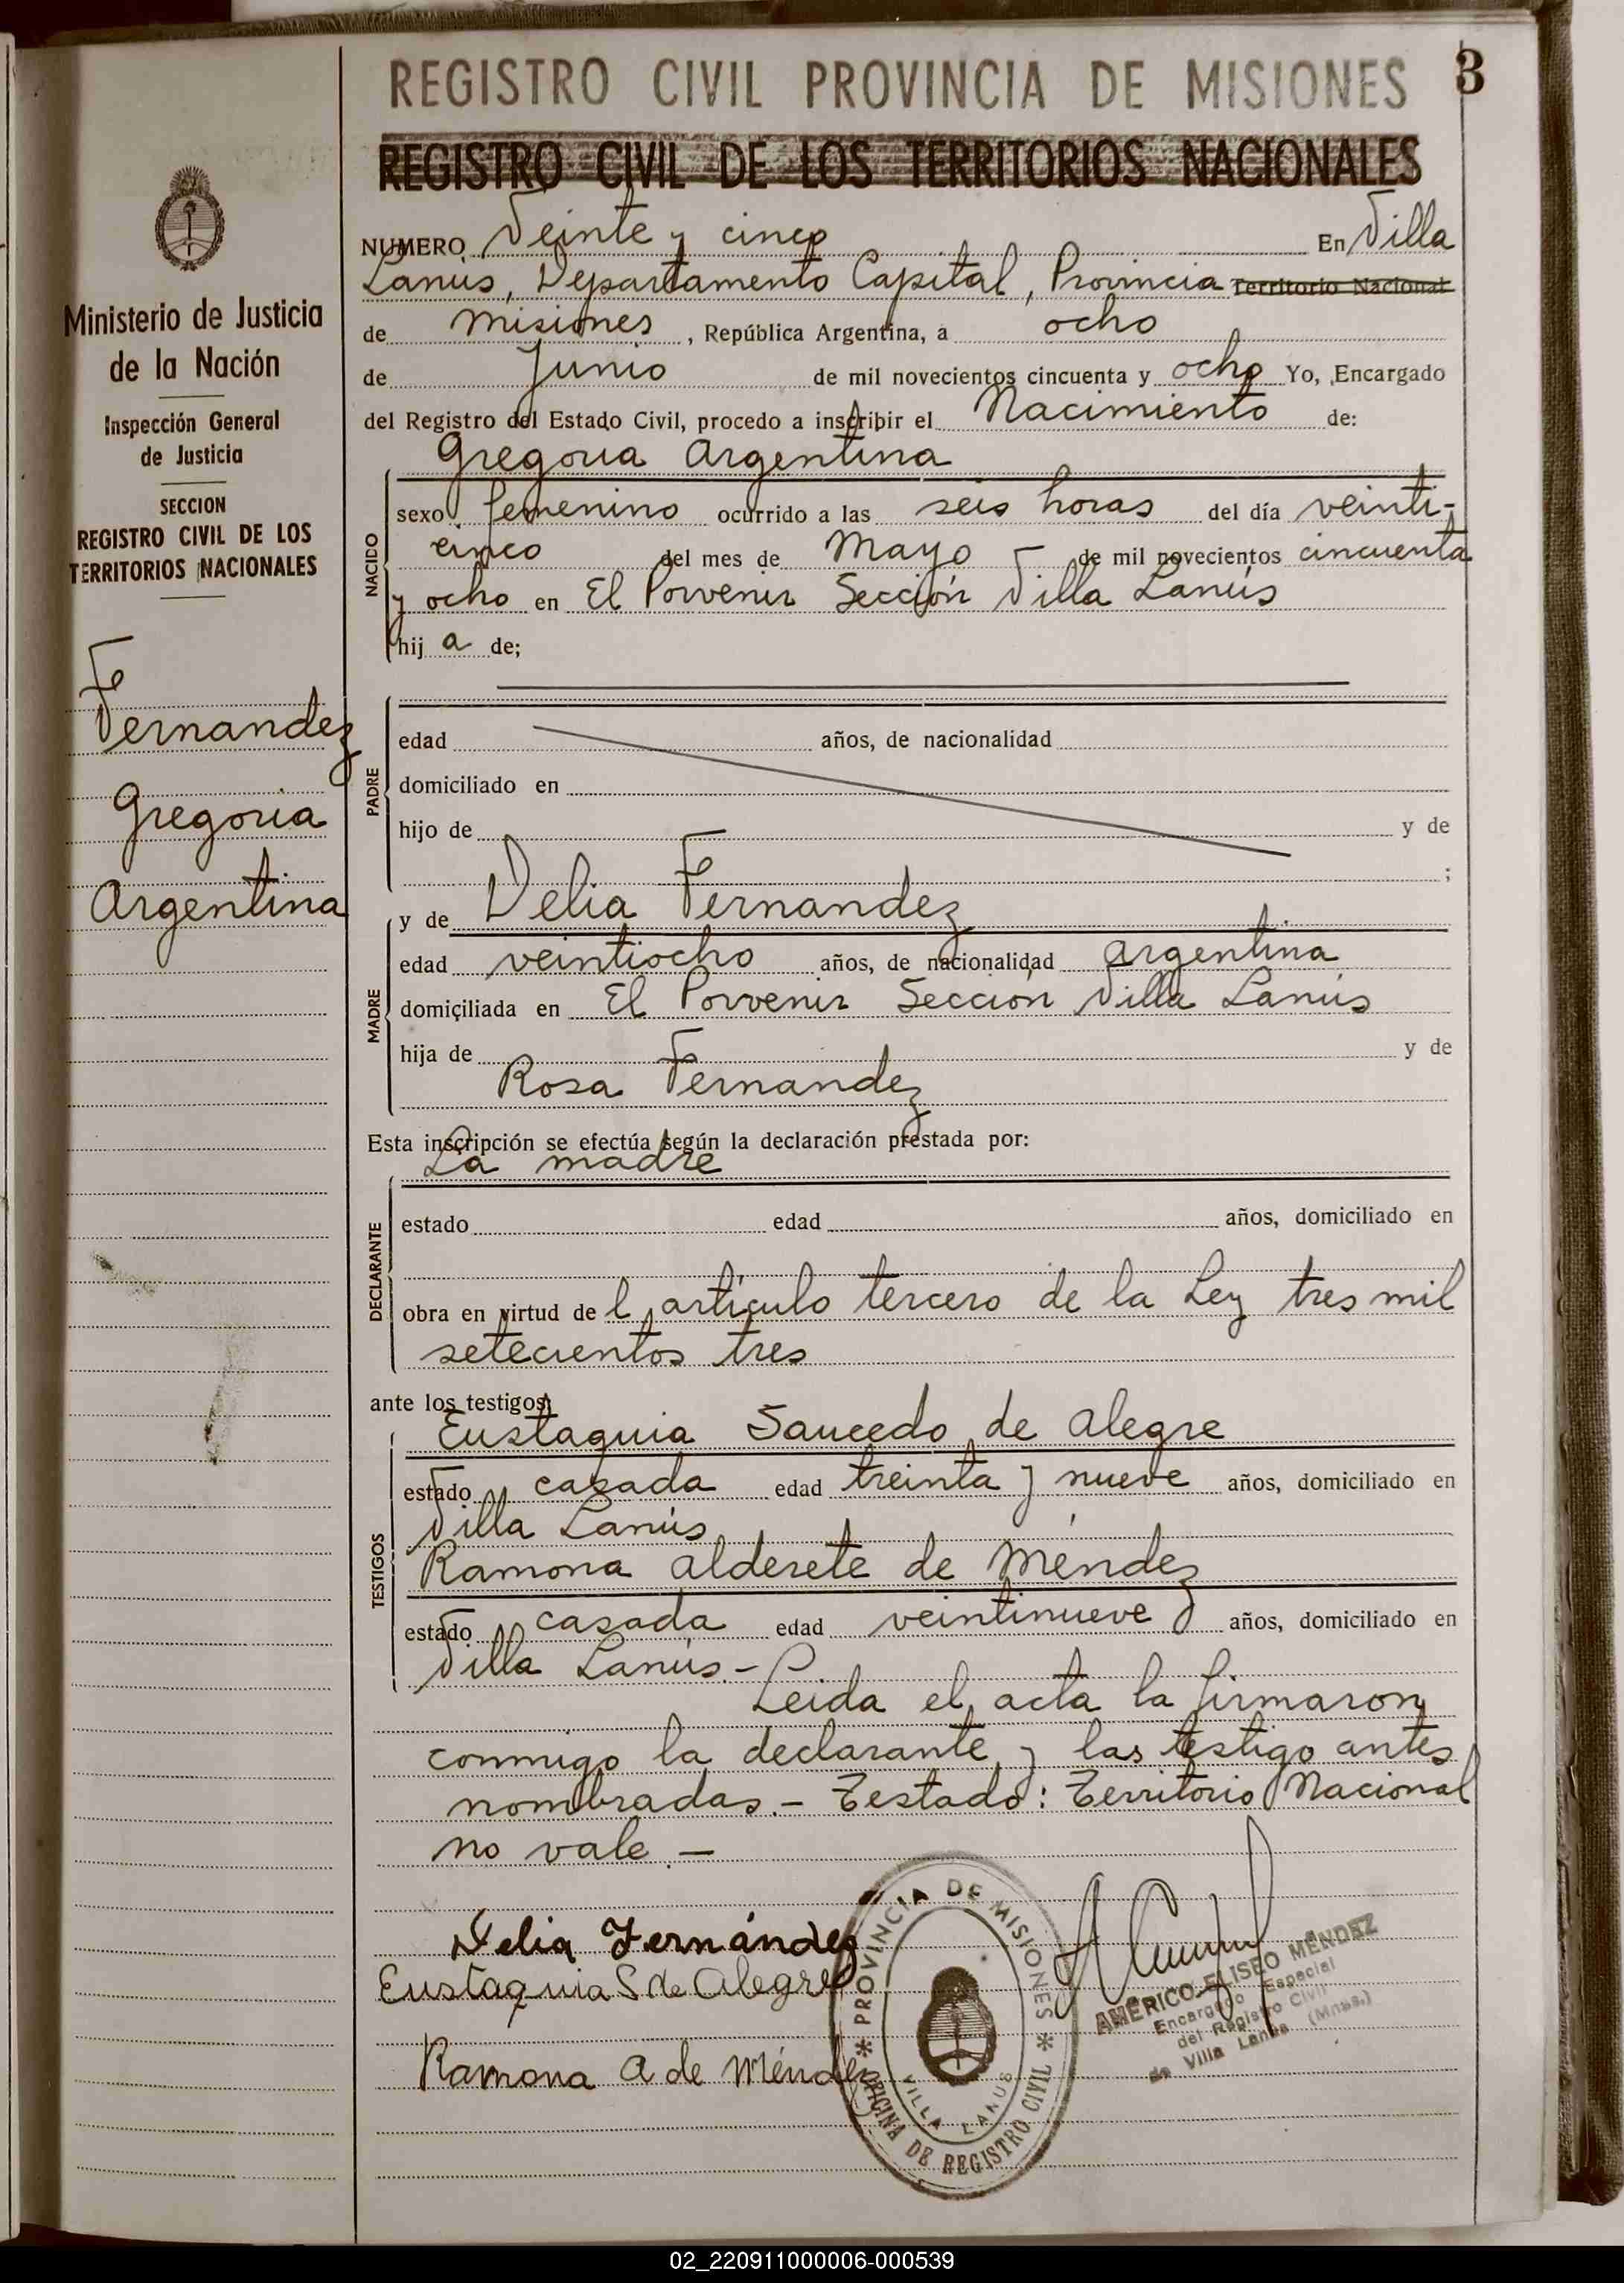 REGISTRO CIVIL PROVINCIA DE MISIONES
3
REGISTRO CIVIL DE LOS TERRITORIOS NACIONALES
Ministerio de Justicia
de la Nación
Inspección General
de Justicia
SECCION
REGISTRO CIVIL DE LOS
TERRITORIOS NACIONALES
Fernandez
Gregoria
Argentina
NUMERO Veinte y cinco En Villa
Lanús, Departamento Capital, Provincia Territorio Nacional
de Misiones, República Argentina, a ocho
de Junio de mil novecientos cincuenta y ocho Yo, Encargado
del Registro del Estado Civil, procedo a inscribir el Nacimiento de:
Gregoria Argentina
NACIDO
sexo femenino ocurrido a las seis horas del día veinti-
cinco del mes de Mayo — de mil novecientos cincuenta
y ocho en El Porvenir Sección Villa Lanús
hij a de;
PADRE
edad años, de nacionalidad
domiciliado en
hijo de y de
;
MADRE
y de Delia Fernandez
edad veintiocho años, de nacionalidad argentina
domiciliada en El Porvenir Sección Villa Lanús
hija de y de
Rosa Fernandez
Esta inscripción se efectúa según la declaración prestada por:
La madre
DECLARANTE
estado edad años, domiciliado en
obra en virtud de l artículo tercero de la Ley tres mil
setecientos tres
ante los testigos:
TESTIGOS
Eustaquia Saucedo de Alegre
estado casada edad treinta y nueve años, domiciliado en
Villa Lanús
Ramona Alderete de Méndez
estado casada edad veintinueve años, domiciliado en
Villa Lanús.-
Leida el acta la firmaron
conmigo la declarante y las testigo antes
nombradas.- Testado: Territorio Nacional
no vale.-
Delia Fernández
Eustaquia S de Alegre
Ramona A de Méndez
PROVINCIA DE MISIONES
OFICINA DE REGISTRO CIVIL
VILLA LANUS
AMERICO ELISEO MÉNDEZ
Encargado Especial
del Registro Civil
de Villa Lanús (Mnes.)
02_220911000006-000539